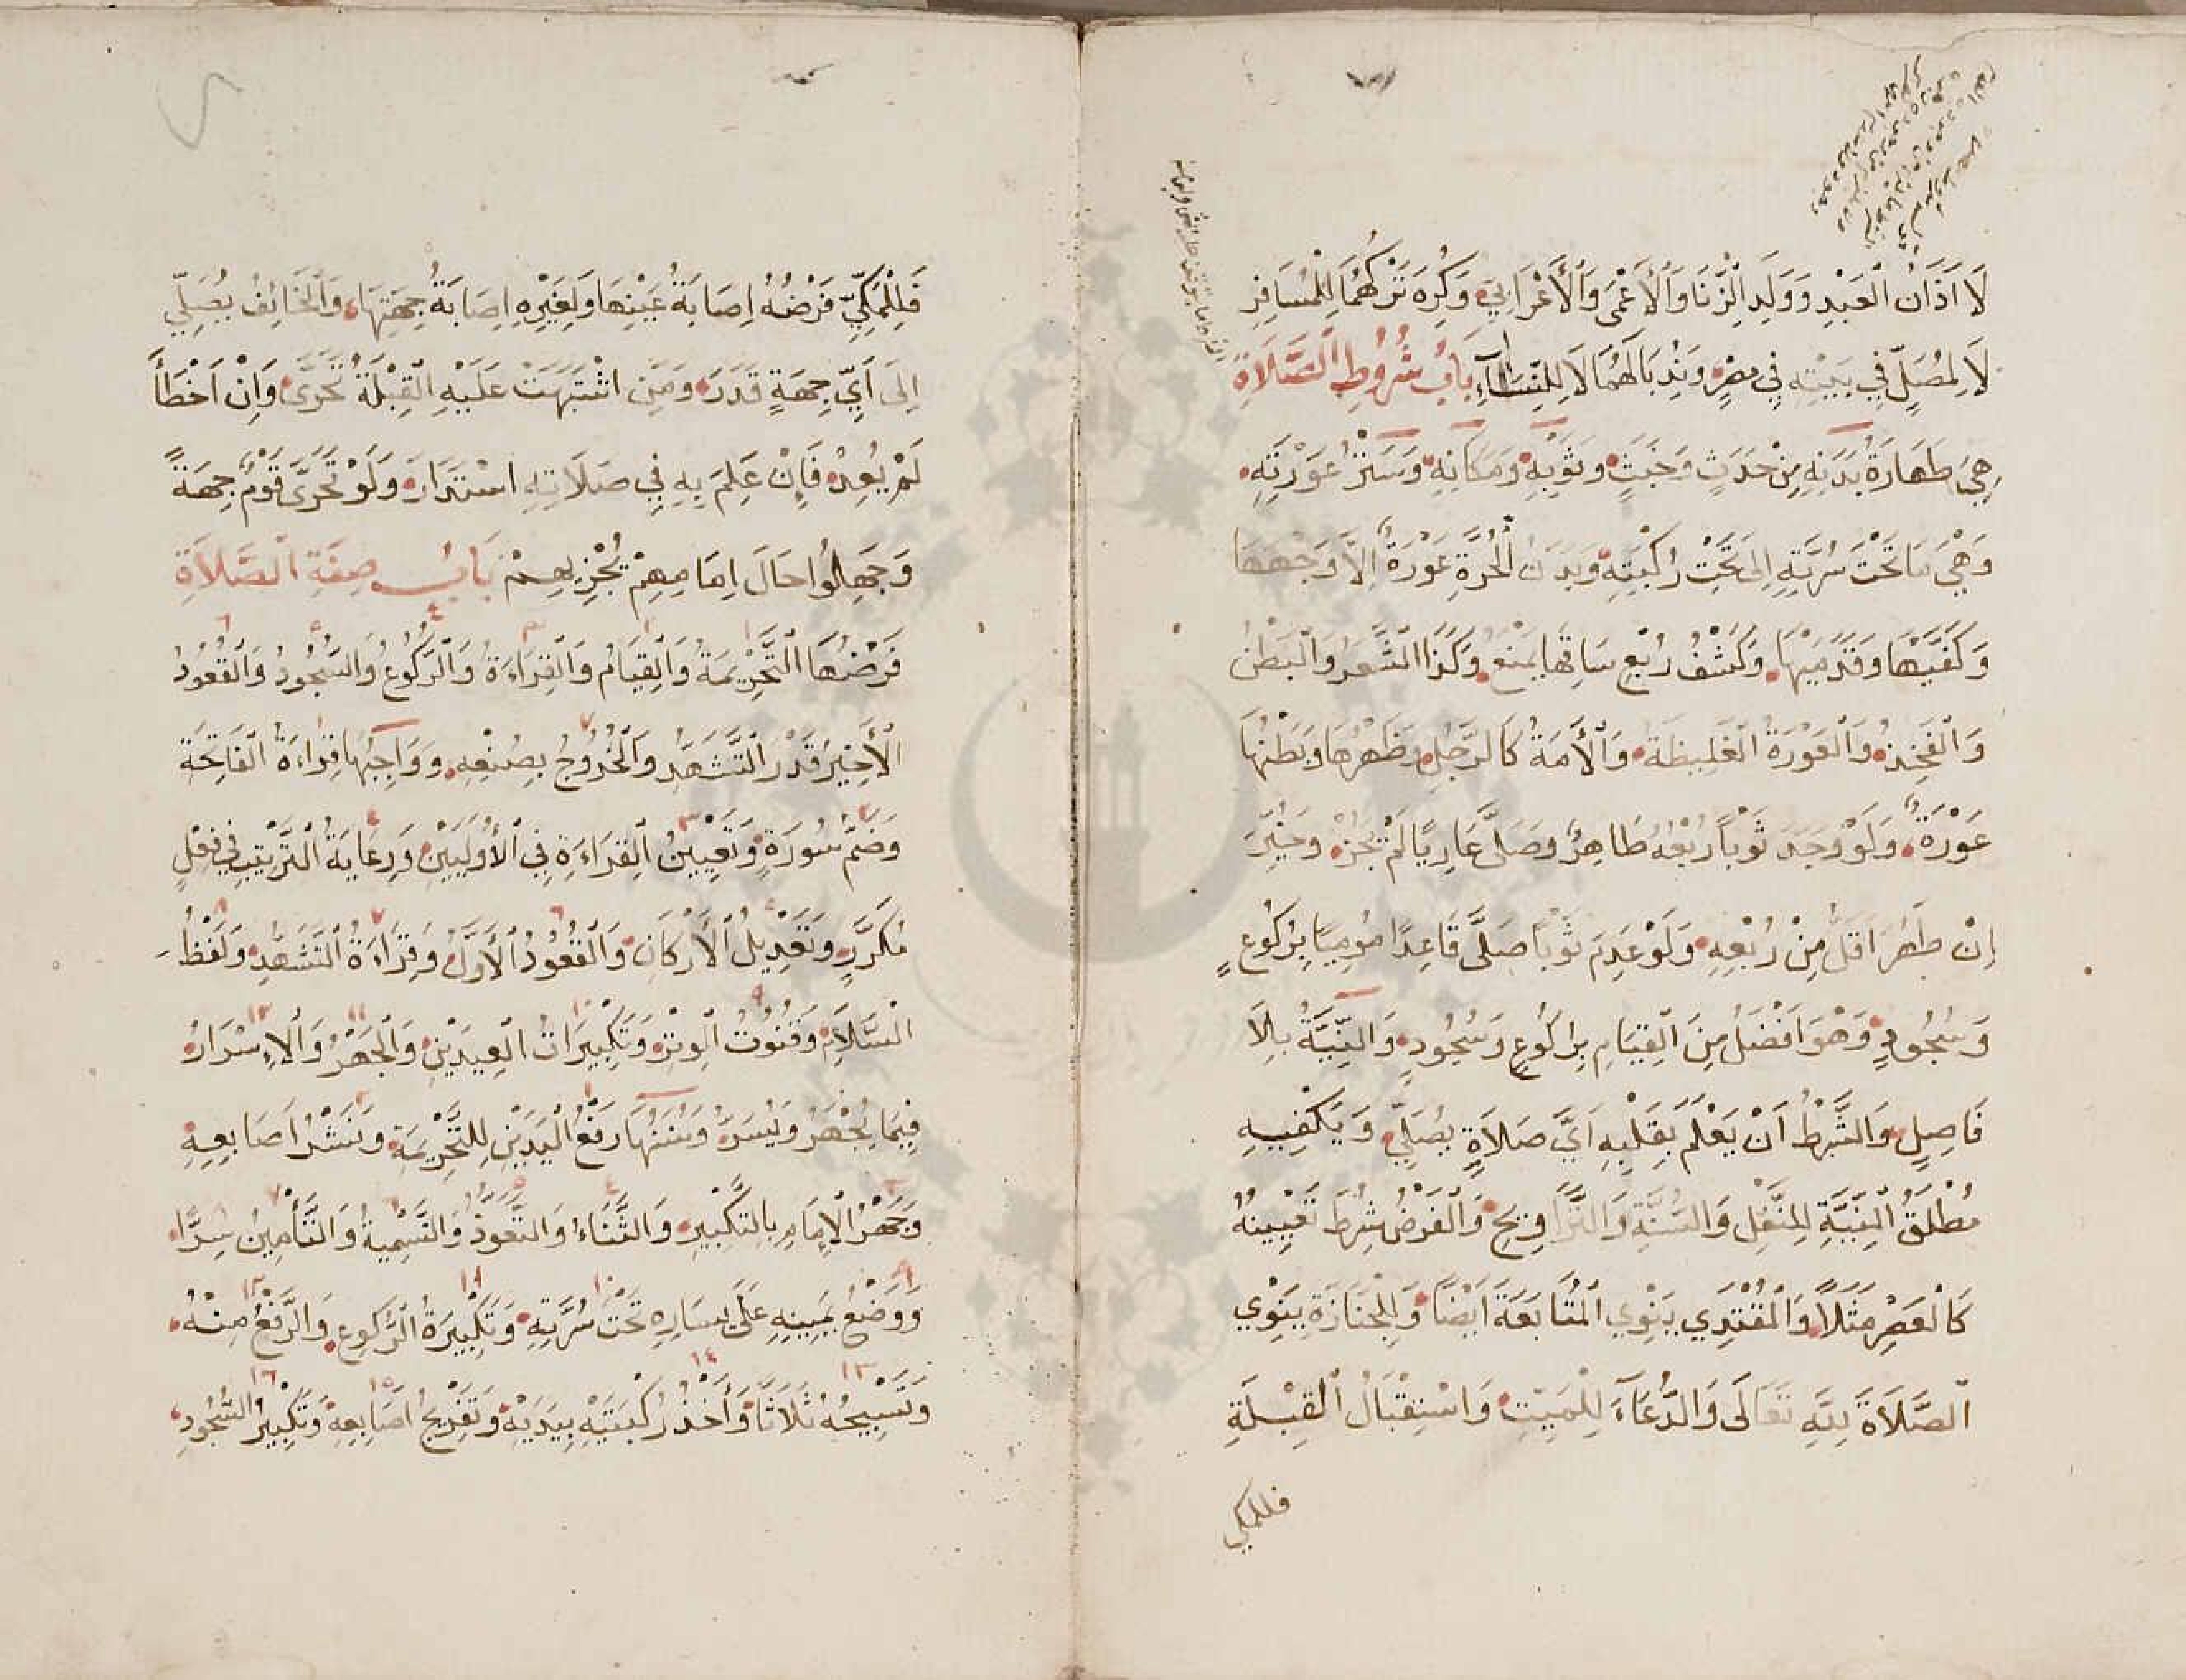 لَا اَذَانُ الْعَبْدِ وَوَلَدِ الزِّنَا وَالْاَعْمَى وَالْأَعْرَابِيِّ وَكُرِهَ تَرْكُهُمَا لِلْمُسَافِرِ
لَا لِمُصَلٍّ فِي بَيْتِهِ فِي مِصْرٍ وَنُدِبَا لَهُمَا لَا لِلنِّسَآءِ بَابُ شُرُوطِ الصَّلَاةِ
هِيَ طَهَارَةُ بَدَنِهِ مِنْ حَدَثٍ وَخَبَثٍ وثَوْبِهِ وَمَكَانِهِ وَسَتْرُ عَوْرَتِهِ
وَهْيَ مَا تَحْتَ سُرَّتِهِ اِلَى تَحْتِ رُكْبَتِهِ وَبَدَنُ الْحُرَّةِ عَوْرَةٌ اِلَّا وَجْهَهَا
وَكَفَّيْهَا وَقَدَمَيْهَا وَكَشْفُ رُبْعِ سَاقِهَا يَمْنَعُ وَكَذَا الشَّعَرُ وَالْبَطْنُ
وَالْفَخِذُ وَالْعَوْرَةُ الْغَلِيظَةُ وَالْأَمَةُ كَالرَّجُلِ وَظَهْرُهَا وَبَطْنُهَا
عَوْرَةٌ وَلَوْ وَجَدَ ثَوْبًا رُبْعُهُ طَاهِرٌ وَصَلَّى عَارِيًا لَمْ يَجُزْ وَخُيِّرَ
اِنْ طَهُرَ اَقَلُّ مِنْ رُبْعِهِ وَلَوْ عَدِمَ ثَوْبًا صَلَّى قَاعِدًا مُومِيًا بِرُكُوعٍ
وَسُجُودٍ وَهْوَ اَفْضَلُ مِنَ الْقِيَامِ بِرُكُوعٍ وَسُجُودٍ وَالنِّيَّةُ بِلَا
فَاصِلٍ وَالشَّرْطُ اَنْ يَعْلَمَ بِقَلْبِهِ اَيَّ صَلَاةٍ يُصَلِّي وَيَكْفِيهِ
مُطْلَقُ النِّيَّةِ لِلنَّفْلِ وَالسُّنَّةِ وَالتَّرَاوِيحِ وَالْفَرْضُ شُرِطَ تَعْيِينُهُ
كَالْعَصْرِ مَثَلًا وَالْمُقْتَدِي يَنْوِي الْمُتَابَعَةَ اَيْضًا وَلِلْجَنَازَةِ يَنْوِي
الصَّلَاةَ لِلَّهِ تَعَالَى وَالدُّعَآءَ لِلْمَيِّتِ وَاسْتِقْبَالُ الْقِبْلَةِ
فللمكي
فَلِلْمَكِّيِّ فَرْضُهُ اِصَابَةُ عَيْنِهَا وَلِغَيْرِهِ اِصَابَةُ جِهَتِهَا وَالْخَائِفُ يُصَلِّي
اِلَى اَيِّ جِهَةٍ قَدَرَ وَمَنِ اشْتَبَهَتْ عَلَيْهِ الْقِبْلَةُ تَحَرَّى وَاِنْ اَخْطَأَ
لَمْ يُعِدْ فَاِنْ عَلِمَ بِهِ فِي صَلَاتِهِ اسْتَدَارَ وَلَوْ تَحَرَّى قَوْمٌ جِهَةً
وَجَهِلُوا حَالَ اِمَامِهِمْ يُجْزِيهِمْ بَابُ صِفَةِ الصَّلَاةِ
فَرْضُهَا التَّحْرِيمَةُ وَالْقِيَامُ وَالْقِرَاءَةُ وَالرُّكُوعُ وَالسُّجُودُ وَالْقُعُودُ
الْأَخِيرُ قَدْرَ التَّشَهُّدِ وَالْخُرُوجُ بِصُنْعِهِ وَوَاجِبُهَا قِرَاءَةُ الْفَاتِحَةِ
وَضَمُّ سُورَةٍ وَتَعْيِينُ الْقِرَاءَةِ فِي الْأُولَيَيْنِ وَرِعَايَةُ التَّرْتِيبِ فِي فِعْلٍ
مُكَرَّرٍ وَتَعْدِيلُ الْأَرْكَانِ وَالْقُعُودُ الْأَوَّلُ وَقِرَاءَةُ التَّشَهُّدِ وَلَفْظُ
السَّلَامِ وَقُنُوتُ الْوِتْرِ وَتَكْبِيرَاتُ الْعِيدَيْنِ وَالْجَهْرُ وَالْاِسْرَارُ
فِيمَا يُجْهَرُ وَيُسَرُّ وَسُنَنُهَا رَفْعُ الْيَدَيْنِ لِلتَّحْرِيمَةِ وَنَشْرُ اَصَابِعِهِ
وَجَهْرُ الْاِمَامِ بِالتَّكْبِيرِ وَالثَّنَاءُ وَالتَّعَوُّذُ وَالتَّسْمِيَةُ وَالتَّأْمِينُ سِرًّا
وَوَضْعُ يَمِينِهِ عَلَى يَسَارِهِ تَحْتَ سُرَّتِهِ وَتَكْبِيرَةُ الرُّكُوعِ وَالرَّفْعُ مِنْهُ
وَتَسْبِيحُهُ ثَلَاثًا وَأَخْذُ رُكْبَتَيْهِ بِيَدَيْهِ وَتَفْرِيجُ اَصَابِعِهِ وَتَكْبِيرُ السُّجُودِ